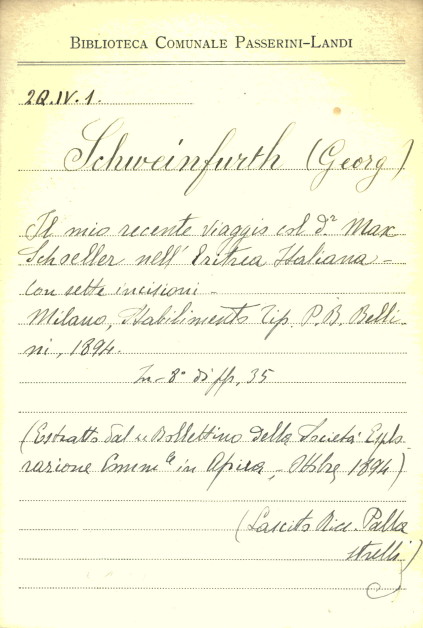 BIBLIOTECA COMUNALE PASSERINI-LANDI
2Q.IV.1.
Schweinfurth (Georg)
Il mio recente viaggio col d.r Max
Schoeller nell' Eritrea Italiana -
con sette incisioni -
Milano, Stabilimento Tip. P. B. Belli-
ni, 1894.
In-8° di pp. 35
(Estratto dal "Bollettino della Società Esplo-
razione Comm.le in Africa, Ottobre 1894)
(Lascito Ricc. Palla
strelli)